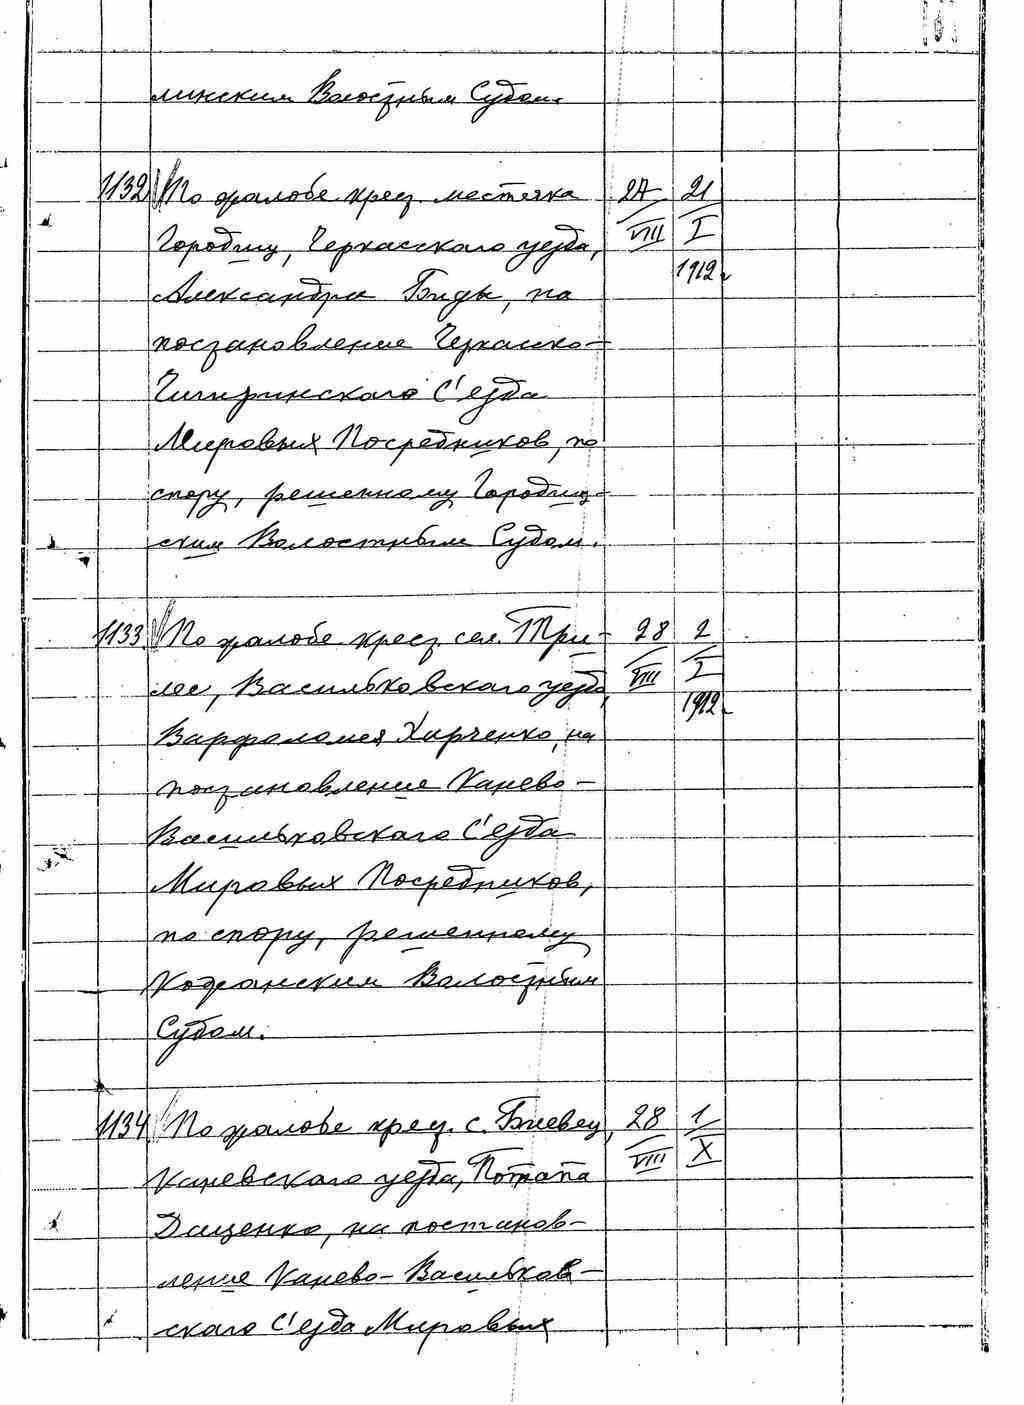 линским Волостным Судом.
1132 По жалобе крест. местечка 27 21
Городищ, Черкасского уезда, VIII I
1912 г.
Александра Биды, на
постановление Черкасско-
Чигиринского С'езда
Мировых Посредников, по
спору, решенному Городищ-
ским Волостным Судом.
1133. По жалобе крест. сел. Три- 28 2
лес, Васильковского уезда, VIII I
1912 г.
Варфоломея Харченко, на
постановление Канево-
Васильковского С'езда
Мировых Посредников,
по спору, решенному
Кожанским Волостным
Судом.
1134 По жалобе крест. с. Биевец, 28 1
Каневского уезда, Потапа VIII X
Даценко, на постанов-
ление Канево-Васильков-
ского С'езда Мировых